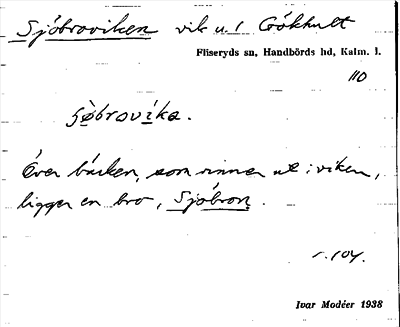 Sjöbroviken vik u. / Gökhult
Fliseryds sn, Handbörds hd, Kalm. l.
110
sjöbrovika.
Över bäcken, som rinner ut i viken,
ligger en bro, Sjöbron.
s. 104.
Ivar Modéer 1938